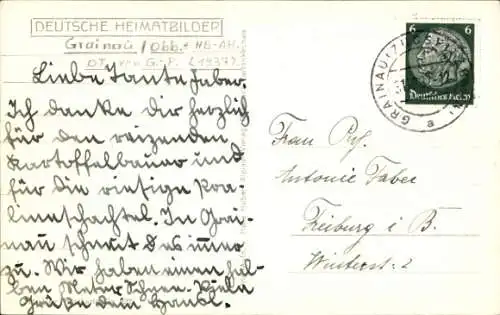 DEUTSCHE HEIMATBILDER
Grainau / Obb. + HB-AH.
OT. von G.-P. (1937)
Liebe Tante Faber.
Ich danke dir herzlich
für den reizenden
Kartoffelbauer und
für die riesige Pra-
lineschachtel. In Grai-
nau schneit es immer
zu. Wir haben einen hal-
ben Meter Schnee. Viele
Grüße dein Hansl.
6 6
Deutsches Reich
GRAINAU
Frau Prf.
Antonie Faber
Freiburg i B.
Winterst. 2